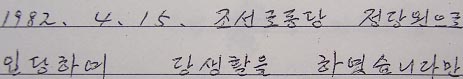 1982. 4. 15. 조선로동당 정당원으로
입당하여 당생활을 하였습니다만